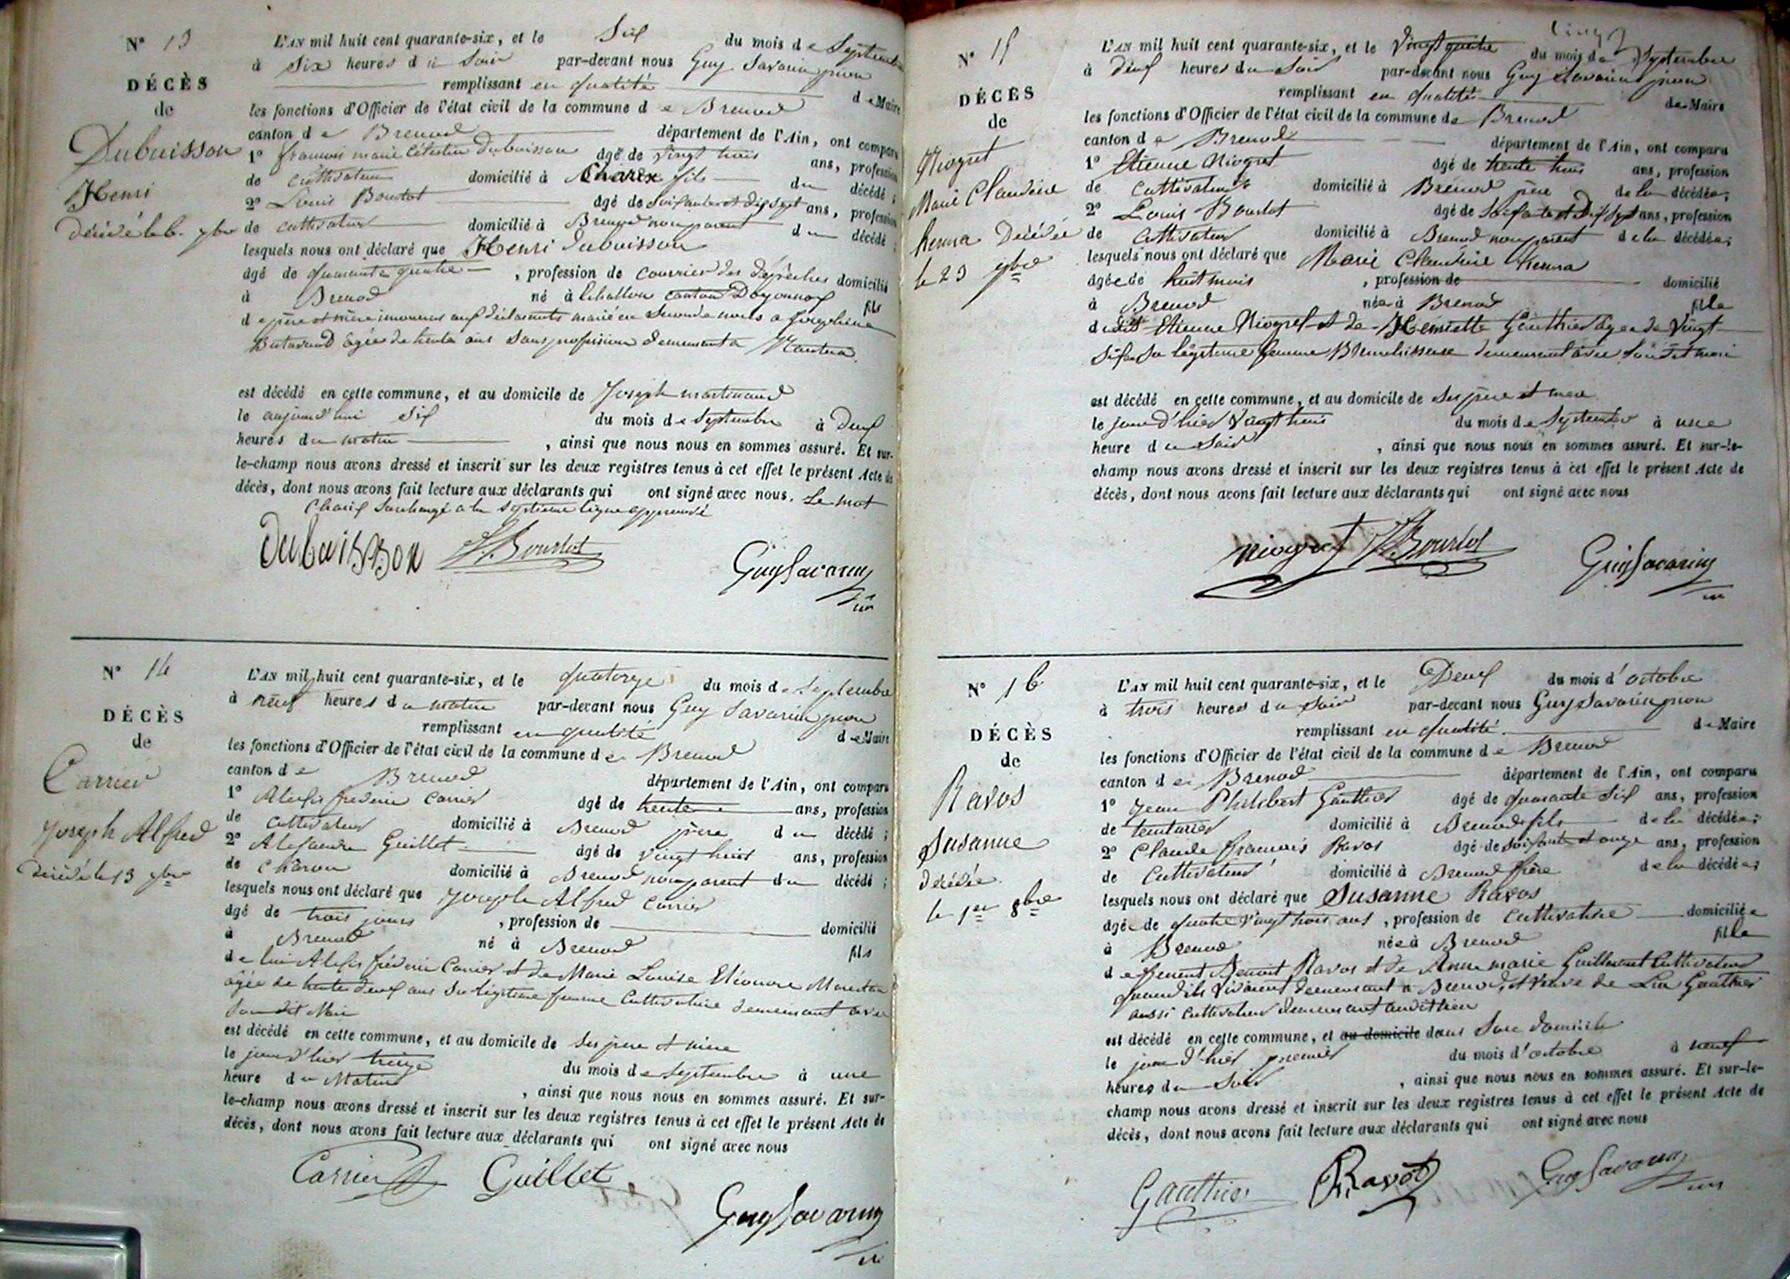 N° 13
DÉCÈS
de
Dubuisson
Henri
décédé le 6. 7bre
L'AN mil huit cent quarante-six, et le Six du mois de Septembre
à Six heures du Soir par-devant nous Guy Savarin
remplissant en qualité de Maire
les fonctions d'Officier de l'état civil de la commune de Brenod
canton de Brenod département de l'Ain, ont comparu
1° françois marie Célestin Dubuisson âgé de vingt trois ans, profession
de cultivateur domicilié à Charix fils du décédé ;
2° Louis Bourlot âgé de Soixante et dix sept ans, profession
de cultivateur domicilié à Brenod non parent du décédé ;
lesquels nous ont déclaré que Henri Dubuisson
âgé de quarante quatre , profession de courrier des dépêches domicilié
à Brenod né à Echallon canton D'oyonnax fils
de père et mère inconnus aux déclarants marié en Seconde noces a Joséphine
âgée de trente ans Sans profession demeurant a Nantua.
est décédé en cette commune, et au domicile de Joseph martinand
le aujourd'hui Six du mois de Septembre à Deux
heures du matin , ainsi que nous nous en sommes assuré. Et sur-
le-champ nous avons dressé et inscrit sur les deux registres tenus à cet effet le présent Acte de
décès, dont nous avons fait lecture aux déclarants qui ont signé avec nous. Le mot
Charix Surchargé a la Septieme ligne approuvé
Dubuisson L. Bourlot
Guy Savarin
N° 14
DÉCÈS
de
Carrier
Joseph Alfred
Décédé le 13 7bre
L'AN mil huit cent quarante-six, et le quatorze du mois de Septembre
à neuf heures du matin par-devant nous Guy Savarin
remplissant en qualité de Maire
les fonctions d'Officier de l'état civil de la commune de Brenod
canton de Brenod département de l'Ain, ont comparu
1° Alexis frédéric Carrier âgé de trente ans, profession
de cultivateur domicilié à Brenod père du décédé ;
2° Alexandre Guillet âgé de vingt huit ans, profession
de Charon domicilié à Brenod non parent du décédé ;
lesquels nous ont déclaré que Joseph Alfred Carrier
âgé de trois jours , profession de domicilié
à Brenod né à Brenod fils
de lui Alexis frédéric Carrier et de Marie Louise Eléonore
âgée de trente deux ans Sa légitime femme Cultivatrice demeurant avec
Son dit Mari
est décédé en cette commune, et au domicile de Ses père et mère
le jour d'hier treize du mois de Septembre à une
heure du Matin , ainsi que nous nous en sommes assuré. Et sur-
le-champ nous avons dressé et inscrit sur les deux registres tenus à cet effet le présent Acte de
décès, dont nous avons fait lecture aux déclarants qui ont signé avec nous
Carrier Guillet
Guy Savarin
N° 15
DÉCÈS
de
Niogret
Marie Claudine
Décédée
le 23 7bre
L'AN mil huit cent quarante-six, et le Vingt quatre du mois de Septembre
à deux heures du Soir par-devant nous Guy Savarin
remplissant en qualité de Maire
les fonctions d'Officier de l'état civil de la commune de Brenod
canton de Brenod département de l'Ain, ont comparu
1° Etienne Niogret âgé de trente trois ans, profession
de cultivateur domicilié à Brenod père de la décédée ;
2° Louis Bourlot âgé de Soixante et Dix Sept ans, profession
de Cultivateur domicilié à Brenod non parent de la décédée ;
lesquels nous ont déclaré que Marie Claudine
âgée de huit mois , profession de domicilié
à Brenod née à Brenod fille
dudit Etienne Niogret et de Henriette Gauthier âgée de Vingt
Six Sa légitime femme demeurant avec Son dit mari
est décédé en cette commune, et au domicile de Ses père et mère
le jour d'hier Vingt trois du mois de Septembre à une
heure du Soir , ainsi que nous nous en sommes assuré. Et sur-le-
champ nous avons dressé et inscrit sur les deux registres tenus à cet effet le présent Acte de
décès, dont nous avons fait lecture aux déclarants qui ont signé avec nous
Niogret L. Bourlot
Guy Savarin
N° 16
DÉCÈS
de
Ravos
Susanne
décédée
le 1er 8bre
L'AN mil huit cent quarante-six, et le Deux du mois d'octobre
à trois heures du Soir par-devant nous Guy Savarin
remplissant en qualité de Maire
les fonctions d'Officier de l'état civil de la commune de Brenod
canton de Brenod département de l'Ain, ont comparu
1° Jean Philibert Gauthier âgé de quarante Six ans, profession
de teinturier domicilié à Brenod fils de la décédée ;
2° Claude francois Ravos âgé de Soixante et onze ans, profession
de Cultivateur domicilié à Brenod frère de la décédée ;
lesquels nous ont déclaré que Susanne Ravos
âgée de quatre Vingt trois ans , profession de Cultivatrice domiciliée
à Brenod née à Brenod fille
de Benoit Ravos et de Anne marie Guillermet Cultivateurs
quand ils Vivaient demeurant a Brenod, et Veuve de Gauthier
aussi Cultivateur demeurant audit lieu
est décédé en cette commune, et au domicile dans Son domicile
le jour d'hier premier du mois d'octobre à neuf
heures du Soir , ainsi que nous nous en sommes assuré. Et sur-le-
champ nous avons dressé et inscrit sur les deux registres tenus à cet effet le présent Acte de
décès, dont nous avons fait lecture aux déclarants qui ont signé avec nous
Gauthier Ravot Guy Savarin